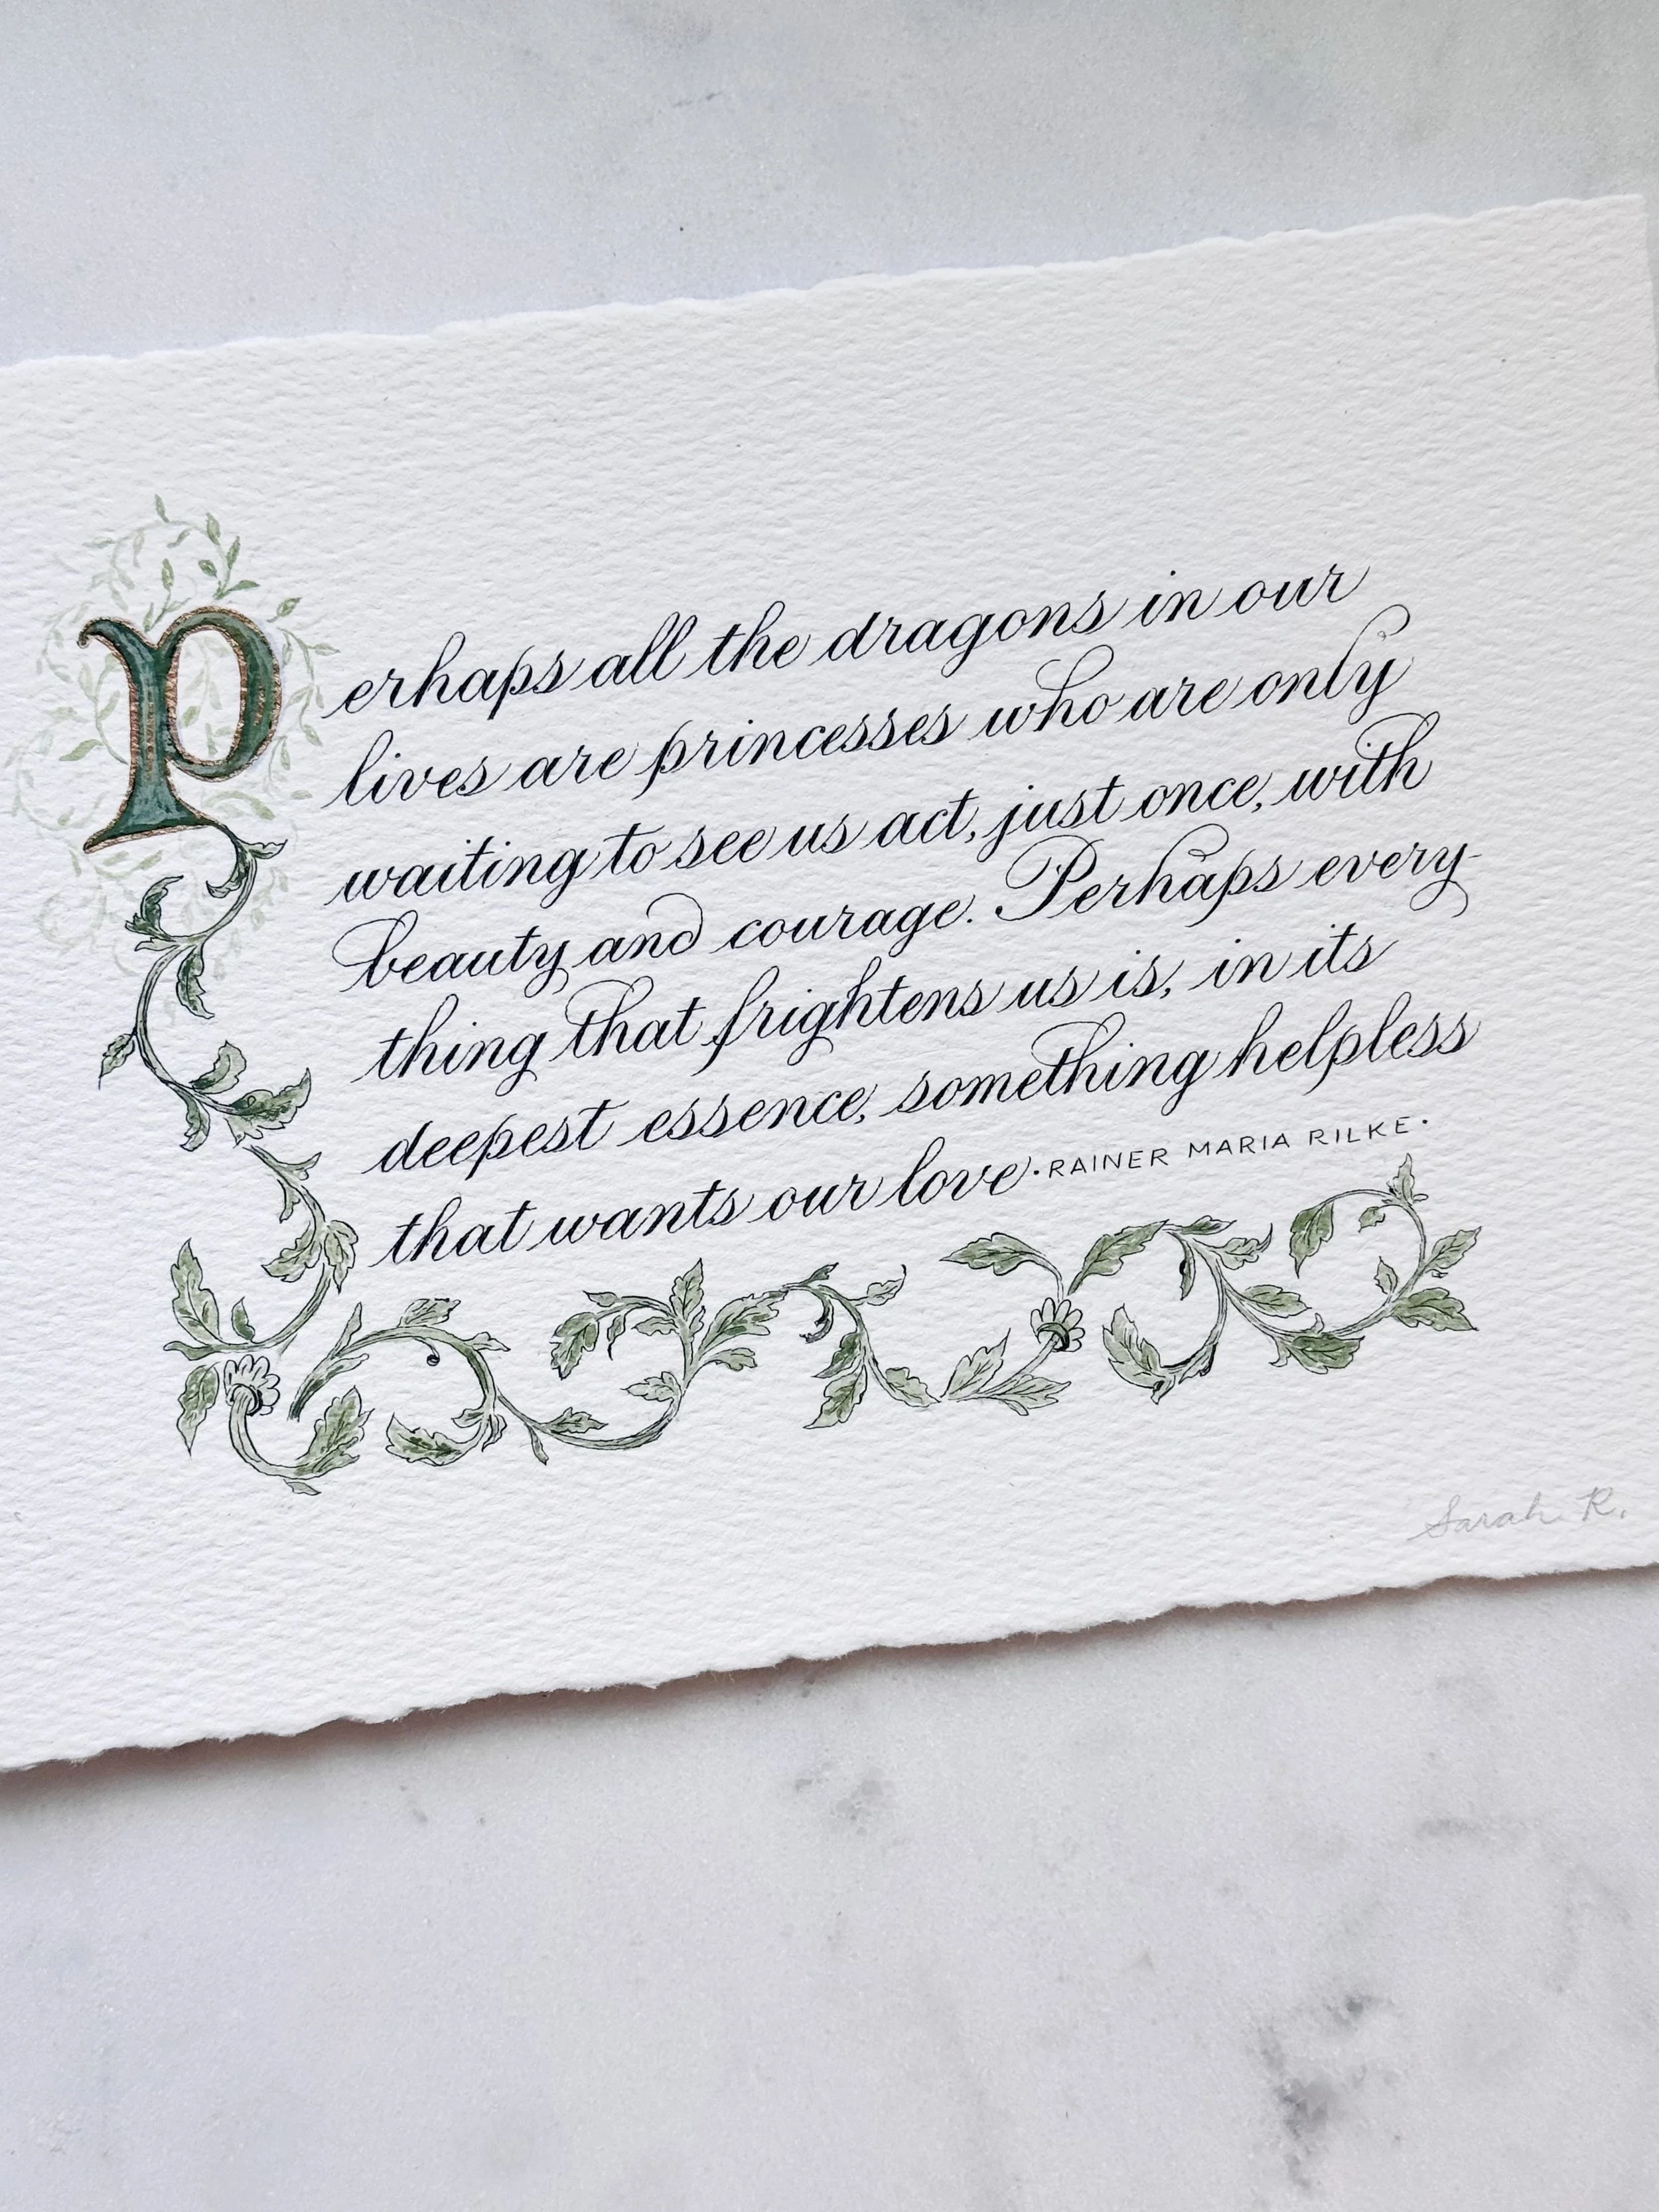 Perhaps all the dragons in our
lives are princesses who are only
waiting to see us act, just once, with
beauty and courage. Perhaps every-
thing that frightens us is, in its
deepest essence, something helpless
that wants our love · RAINER MARIA RILKE ·
Sarah R.